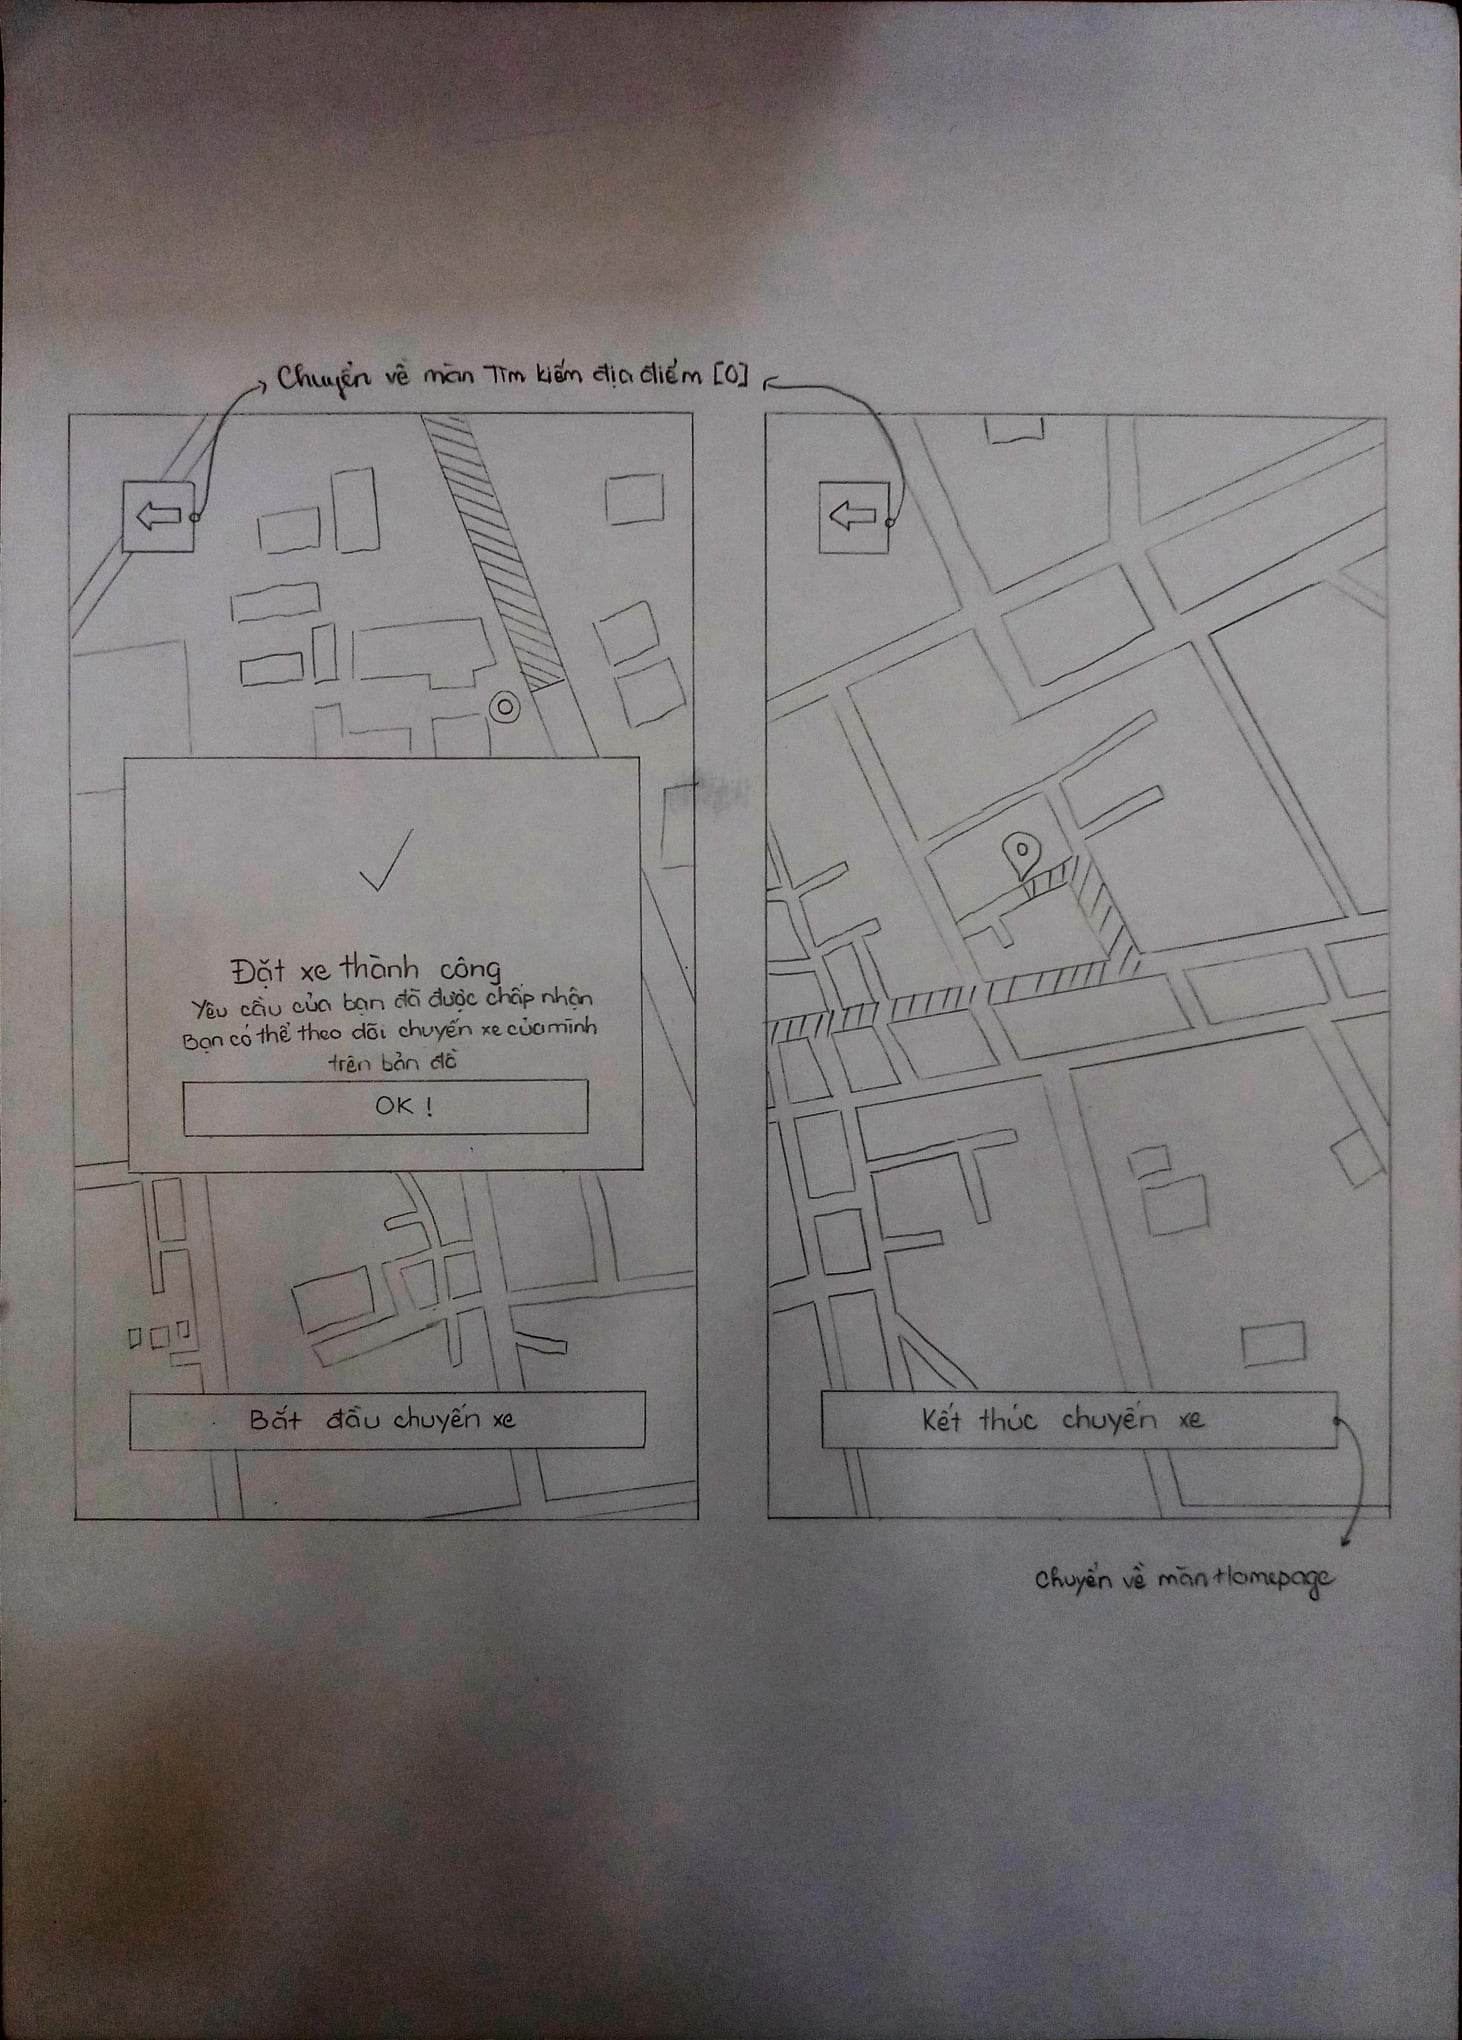 Chuyển về màn Tìm kiếm địa điểm [0]
Đặt xe thành công
Yêu cầu của bạn đã được chấp nhận
Bạn có thể theo dõi chuyến xe của mình
trên bản đồ
OK !
Bắt đầu chuyến xe
Kết thúc chuyến xe
Chuyển về màn Homepage